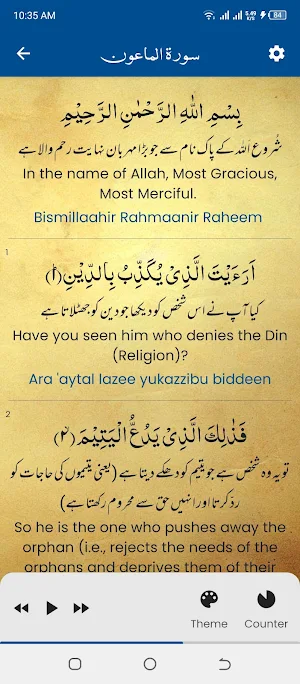 10:35 AM
5.49 K/s
84
سورة الماعون
بِسْمِ اللّٰهِ الرَّحْمٰنِ الرَّحِيْمِ
شروع اللہ کے پاک نام سے جو بڑا مہربان نہایت رحم والا ہے
In the name of Allah, Most Gracious,
Most Merciful.
Bismillaahir Rahmaanir Raheem
1
اَرَءَيْتَ الَّذِيْ يُكَذِّبُ بِالدِّيْنِ ﴿۱﴾
کیا آپ نے اس شخص کو دیکھا جو دین کو جھٹلاتا ہے
Have you seen him who denies the Din
(Religion)?
Ara 'aytal lazee yukazzibu biddeen
2
فَذٰلِكَ الَّذِيْ يَدُعُّ الْيَتِيْمَ ﴿۲﴾
تو یہ وہ شخص ہے جو یتیم کو دھکے دیتا ہے (یعنی یتیموں کی حاجات کو
رد کرتا اور انہیں حق سے محروم رکھتا ہے)
So he is the one who pushes away the
orphan (i.e., rejects the needs of the
orphans and deprives them of their
Theme
Counter